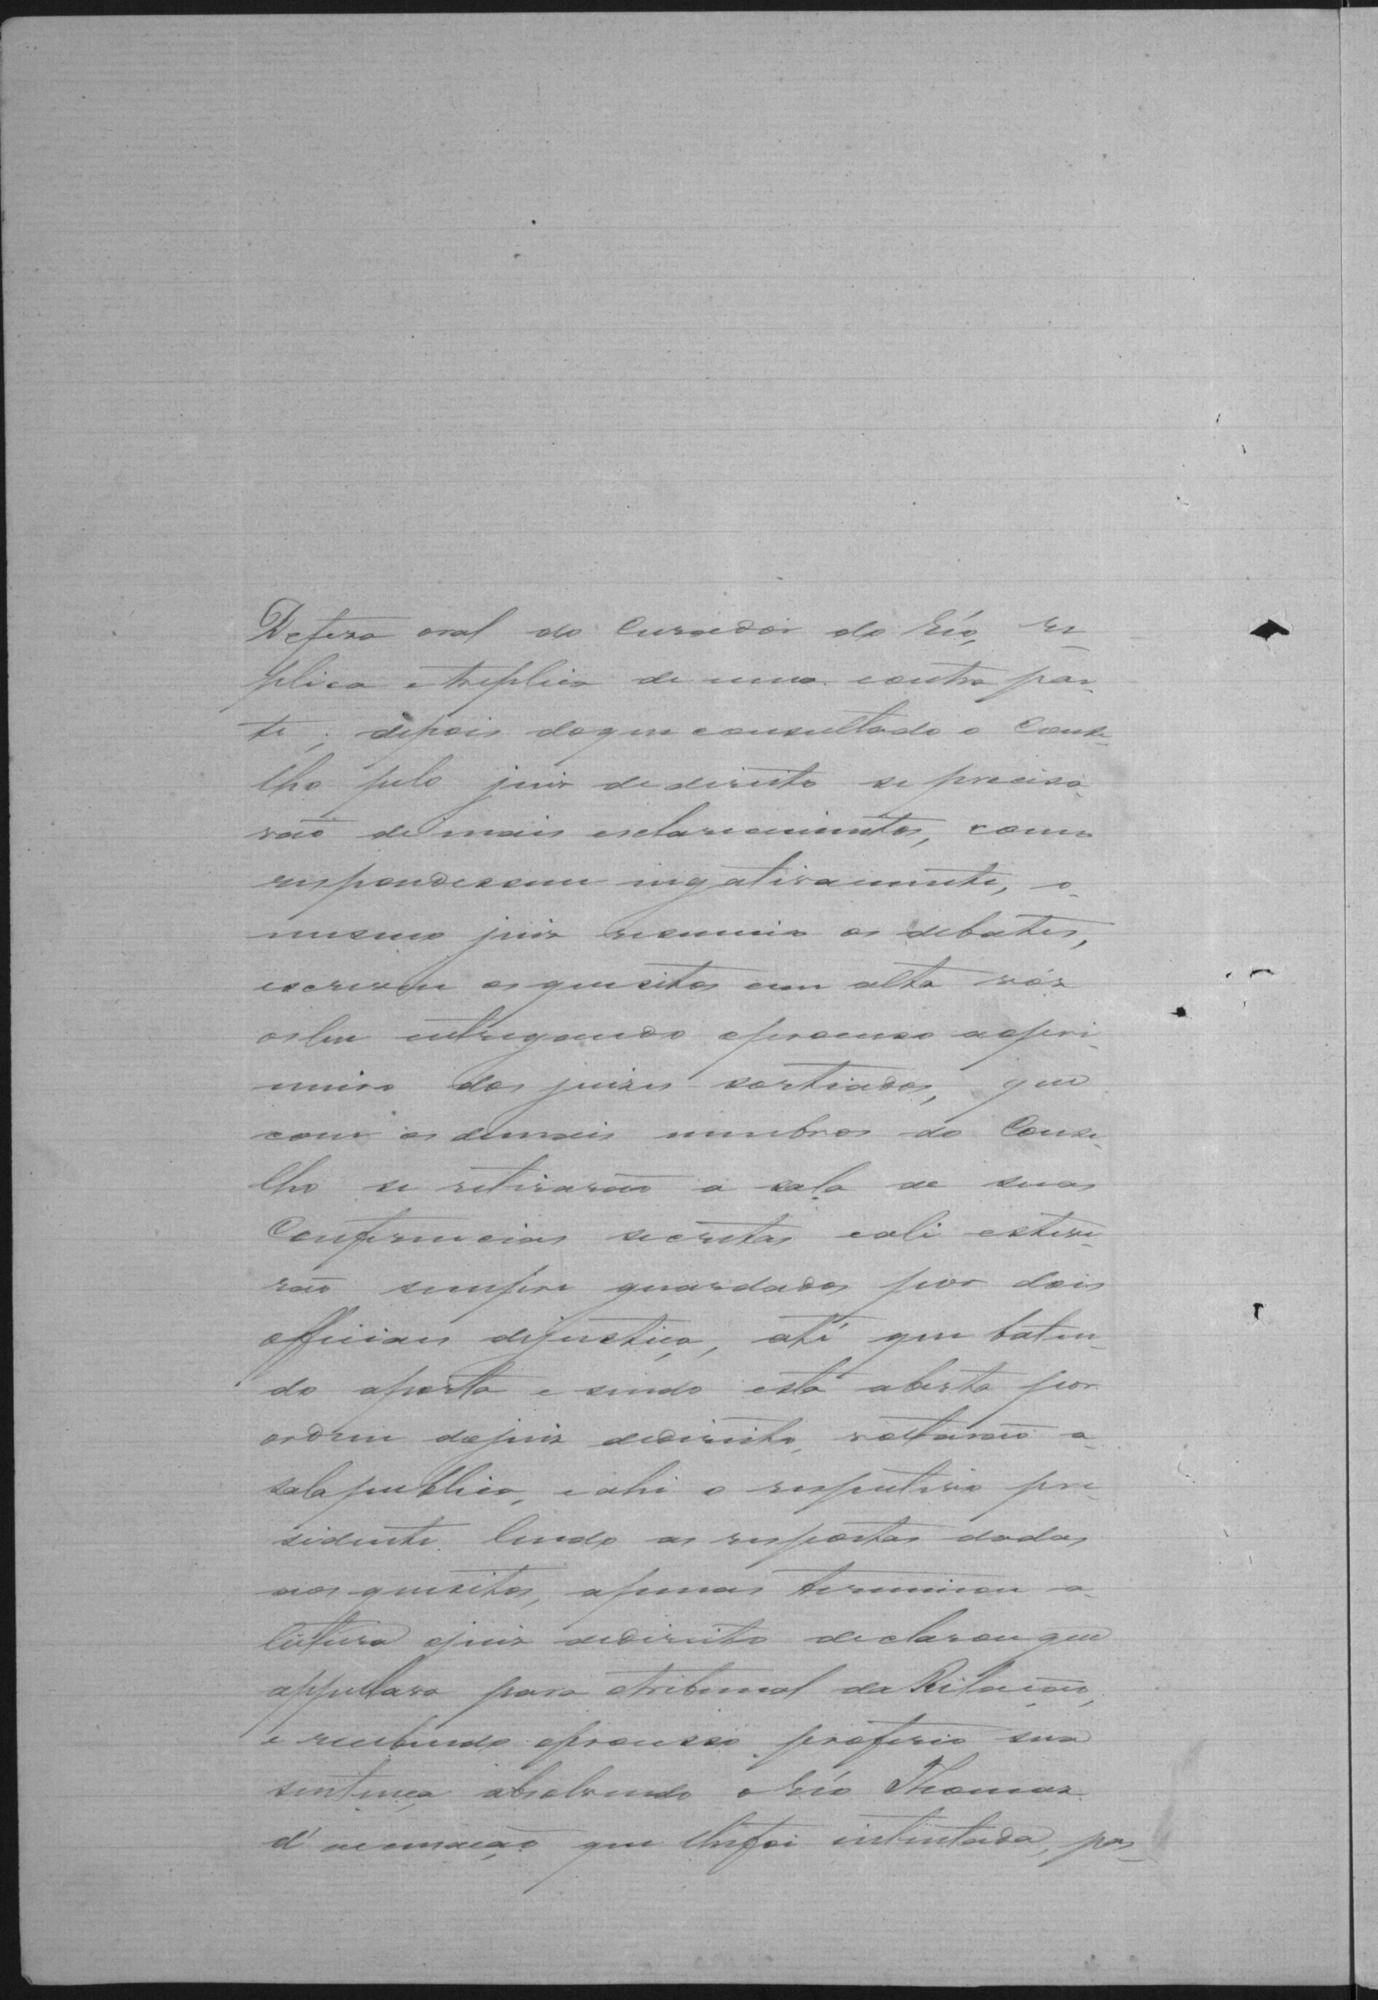 Defeza oral do Curador do réo, re-
plica e treplica de uma e outra par-
te; depois do que consultado o Conse-
lho pelo juiz de direito se precisa-
vão de mais esclarecimentos, como
respondessem negativamente, o
mesmo juiz resumio os debates,
escreveu os quesitos em alta voz
os leu entregando o processo ao pri-
meiro dos juizes sorteados, que
com os demais membros do Conse-
lho se retirarão a sala de suas
Conferencias secretas e ali estive-
rão sempre guardados por dois
officiaes de justiça, até que baten-
do a porta e sendo esta aberta por
ordem do juiz de direito, voltarão a
sala publica, e ahi o respectivo pre-
sidente lendo as respostas dadas
aos quesitos, apenas terminou a
leitura o juiz de direito declarou que
appellava para o tribunal da Relação,
e recebendo o processo proferio sua
sentença absolvendo o réo Thomaz
d'accusação que lhe foi intentada, pas-